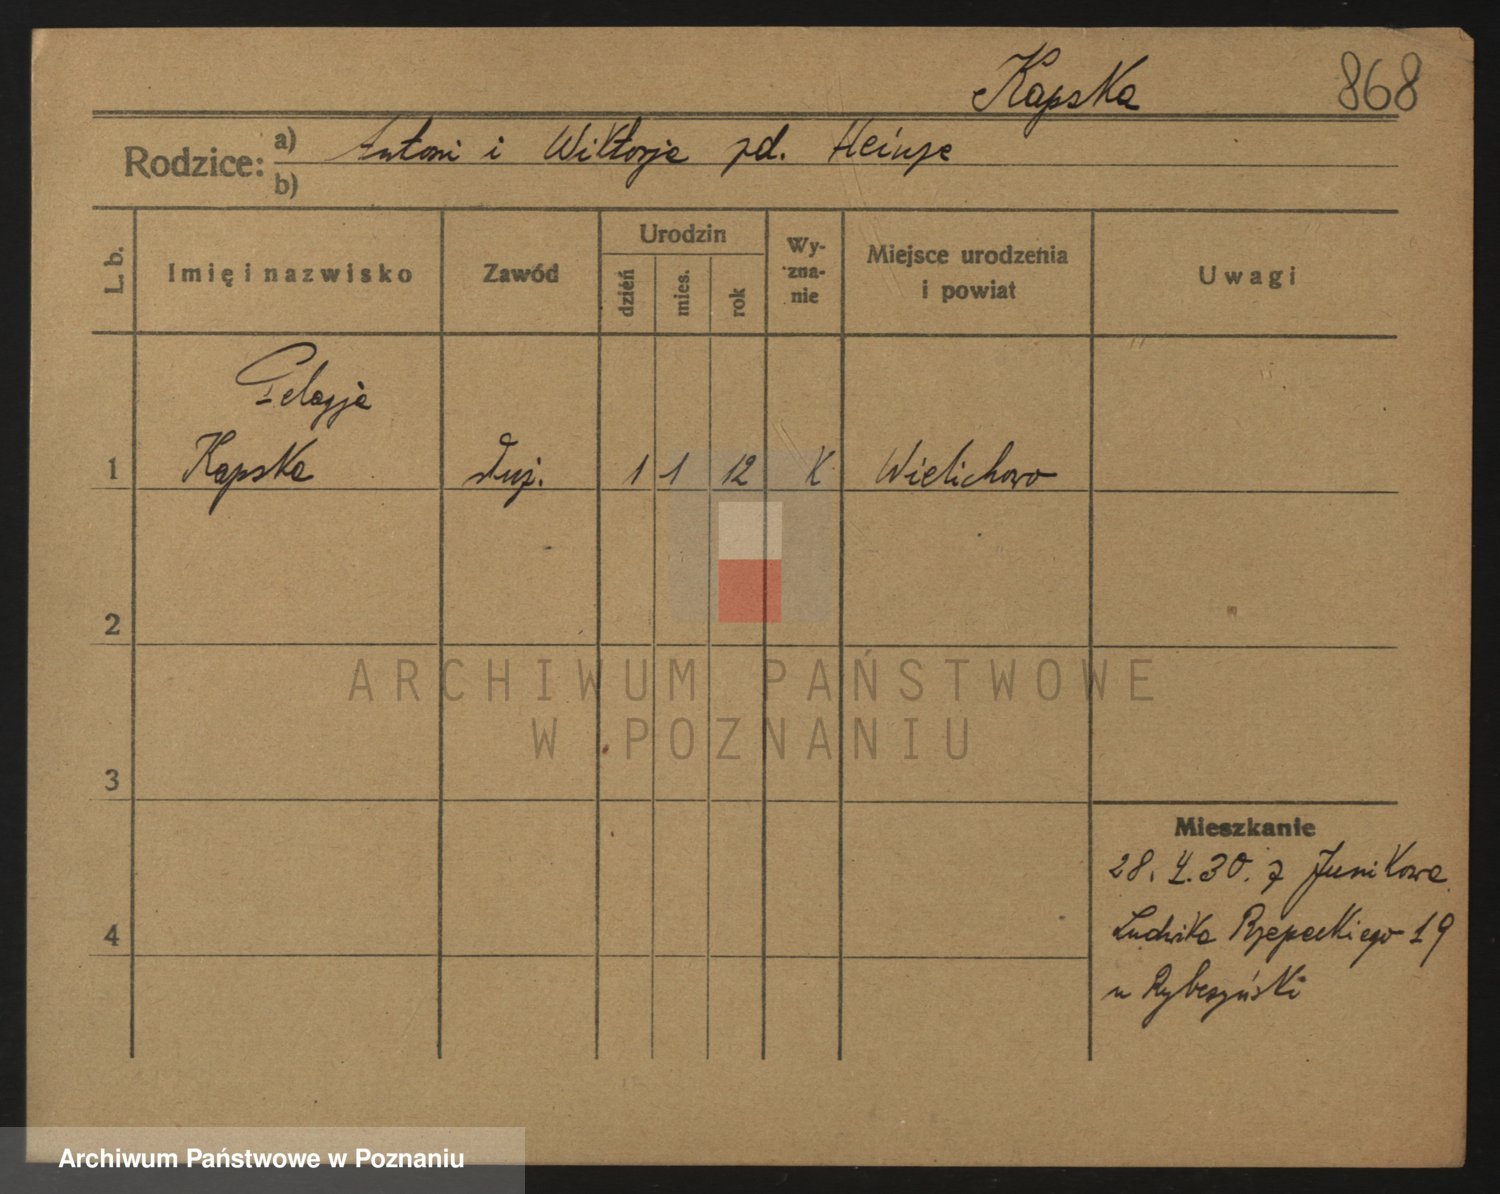 Kapska
868
Rodzice:
a) Antoni i Wiktorja zd. Heinze
b)
L. b.
Imię i nazwisko
Zawód
Urodzin
dzień
mies.
rok
Wy-
zna-
nie
Miejsce urodzenia
i powiat
Uwagi
Pelagja
1 Kapska służ. 1 1 12 K Wielichowo
2
ARCHIWUM PAŃSTWOWE
W POZNANIU
3
Mieszkanie
28. 4. 30. z Junikowa
4
Ludwika Rzepeckiego 19
u Rybczyński
Archiwum Państwowe w Poznaniu